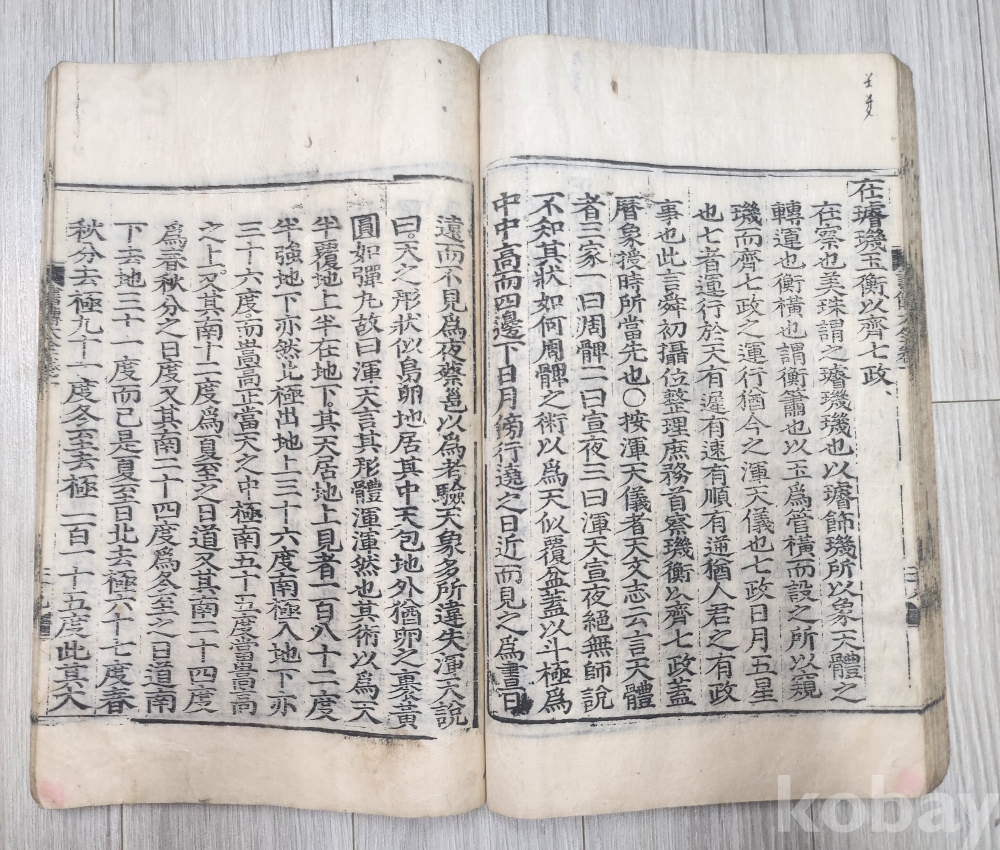 在璿璣玉衡以齊七政、
在察也美珠謂之璿璣璣也以璿飾璣所以象天體之
轉運也衡橫也謂衡簫也以玉爲管橫而設之所以窺
璣而齊七政之運行猶今之渾天儀也七政日月五星
也七者運行於天有遲有速有順有逆猶人君之有政
事也此言舜初攝位整理庶務首察璣衡以齊七政蓋
曆象授時所當先也○按渾天儀者天文志云言天體
者三家一曰周髀二曰宣夜三曰渾天宣夜絕無師說
不知其狀如何周髀之術以爲天似覆盆蓋以斗極爲
中中高而四邊下日月傍行遶之日近而見之爲晝日
遠而不見爲夜蔡邕以爲考驗天象多所違失渾天說
曰。天之形狀似鳥卵地居其中天包地外猶卵之裹黃
圓如彈丸故曰渾天言其形體渾渾然也其術以爲天
半覆地上半在地下。其天居地上見者一百八十二度
半強地下亦然北極出地上三十六度南極入地下亦
三十六度。而嵩高正當天之中極南五十五度當嵩高
之上。又其南十二度爲夏至之日道又其南二十四度
爲春秋分之日度又其南二十四度爲冬至之日道南
下去地三十一度而已是夏至日北去極六十七度春
秋分去極九十一度冬至去極一百一十五度此其大
kobay